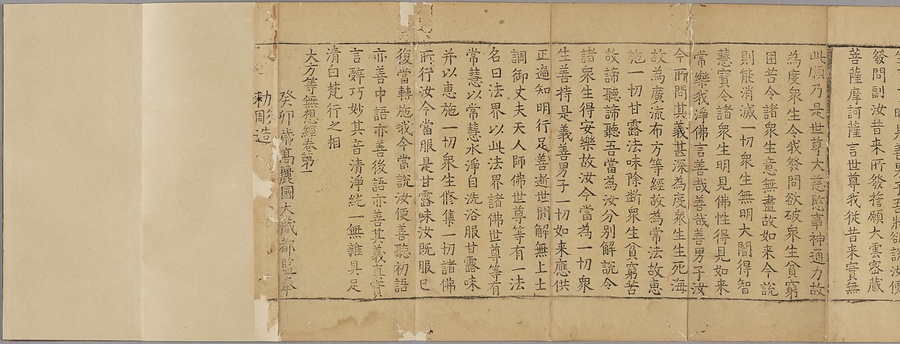 發問副汝昔來所發擔願大雲密藏
菩薩摩訶薩言世尊我從昔來實無
此願乃是世尊大慈愍事神通力故
為度衆生令我發問欲破衆生貧窮
困苦令諸衆生意無盡故如來今說
則能消滅一切衆生無明大闇得智
慧寳令諸衆生明見佛性得見如來
常樂我淨佛言善哉善哉善男子汝
今所問其義甚深為度衆生生死海
故為廣流布方等經故為常法故惠
施一切甘露法味除斷衆生貧窮苦
故諦聽諦聽吾當為汝分別解說令
諸衆生得安樂故汝今當為一切衆
生善持是義善男子一切如來應供
正遍知明行足善逝世間解無上士
調御丈夫天人師佛世尊等有一法
名曰法界以此法界諸佛世尊等有
常慧以常慧水淨自洗浴服甘露味
并以惠施一切衆生修集一切諸佛
所行汝今當服是甘露味汝既服已
復當轉施我今當說汝便善聽初語
亦善中語亦善後語亦善其義真實
言辭巧妙其音清淨純一無雜具足
清白梵行之相
大方等無想經卷第一
癸卯歲高麗國大藏都監奉
勑彫造